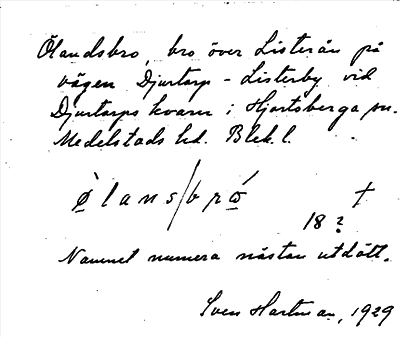 Ölandsbro, bro över Listerån på
vägen Djurtorp - Listerby vid
Djurtorps kvarn i Hjortsberga sn.
Medelstads hd. Blek. l.
ø̀ l a n s / b r ó̲ †
18 ?
Namnet numera nästan utdött.
Sven Hartman, 1929